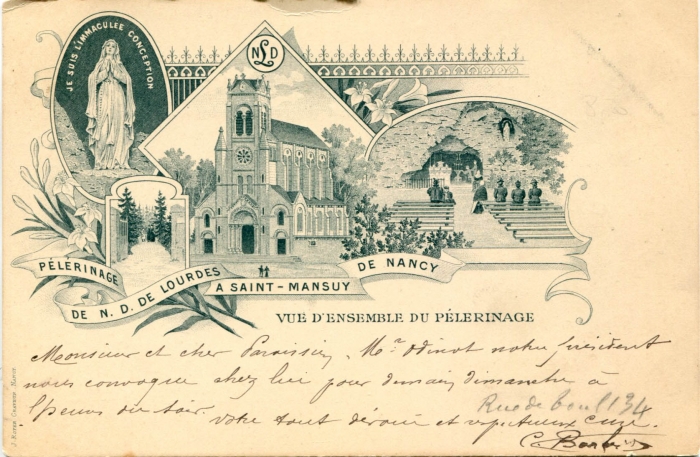 JE SUIS L'IMMACULÉE CONCEPTION
NLD
PÉLERINAGE
DE N. D. DE LOURDES
A SAINT-MANSUY
DE NANCY
VUE D'ENSEMBLE DU PÉLERINAGE
Monsieur et cher Paroissien, Mr Odinot notre président
nous convoque chez lui pour demain dimanche à
du soir.
Rue de
134
votre tout dévoué et respectueux curé.
C.